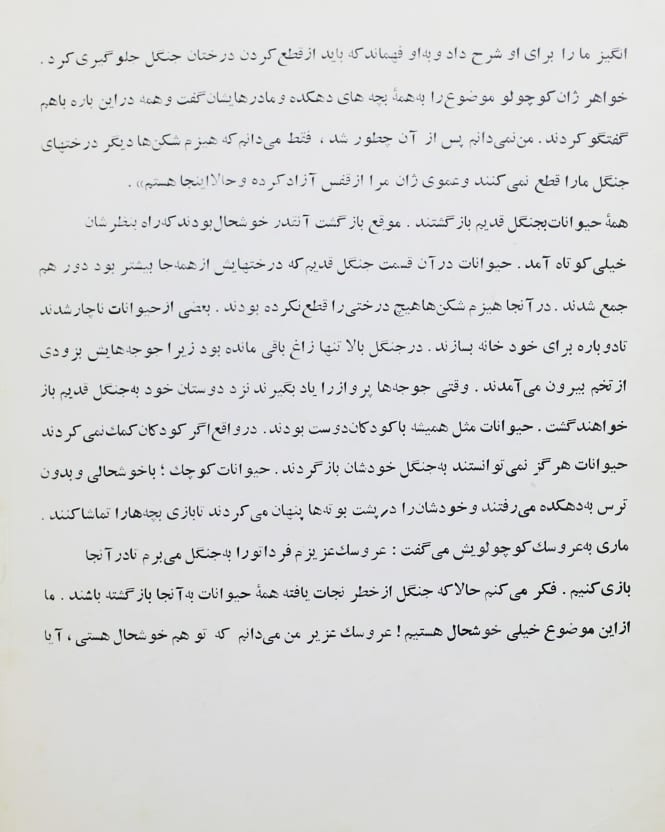 انگیز ما را برای او شرح داد و به او فهماند که باید از قطع کردن درختان جنگل جلوگیری کرد .
خواهر ژان کوچولو موضوع را به همهٔ بچه های دهکده و مادرهایشان گفت و همه در این باره باهم
گفتگو کردند . من نمی‌دانم پس از آن چطور شد ، فقط می‌دانم که هیزم شکن‌ها دیگر درختهای
جنگل مارا قطع نمی‌کنند و عموی ژان مرا از قفس آزاد کرده و حالا اینجا هستم» .
همهٔ حیوانات بجنگل قدیم بازگشتند . موقع بازگشت آنقدر خوشحال بودند که راه بنظرشان
خیلی کوتاه آمد . حیوانات در آن قسمت جنگل قدیم که درختهایش از همه‌جا بیشتر بود دور هم
جمع شدند . در آنجا هیزم شکن‌ها هیچ درختی را قطع نکرده بودند . بعضی از حیوانات ناچار شدند
تا دوباره برای خود خانه بسازند . در جنگل بالا تنها زاغ باقی مانده بود زیرا جوجه‌هایش بزودی
از تخم بیرون می‌آمدند . وقتی جوجه‌ها پرواز را یاد بگیرند نزد دوستان خود به جنگل قدیم باز
خواهند گشت . حیوانات مثل همیشه با کودکان دوست بودند . در واقع اگر کودکان کمك نمی کردند
حیوانات هرگز نمی‌توانستند به جنگل خودشان بازگردند . حیوانات کوچك ؛ با خوشحالی و بدون
ترس به دهکده می‌رفتند و خودشان را در پشت بوته‌ها پنهان می‌کردند تا بازی بچه‌ها را تماشا کنند .
ماری به عروسك کوچولویش می‌گفت : عروسك عزیزم فردا تورا به جنگل می‌برم تا در آنجا
بازی کنیم . فکر می کنم حالا که جنگل از خطر نجات یافته همهٔ حیوانات به آنجا بازگشته باشند . ما
از این موضوع خیلی خوشحال هستیم ! عروسك عزیر من می‌دانم که تو هم خوشحال هستی ، آیا